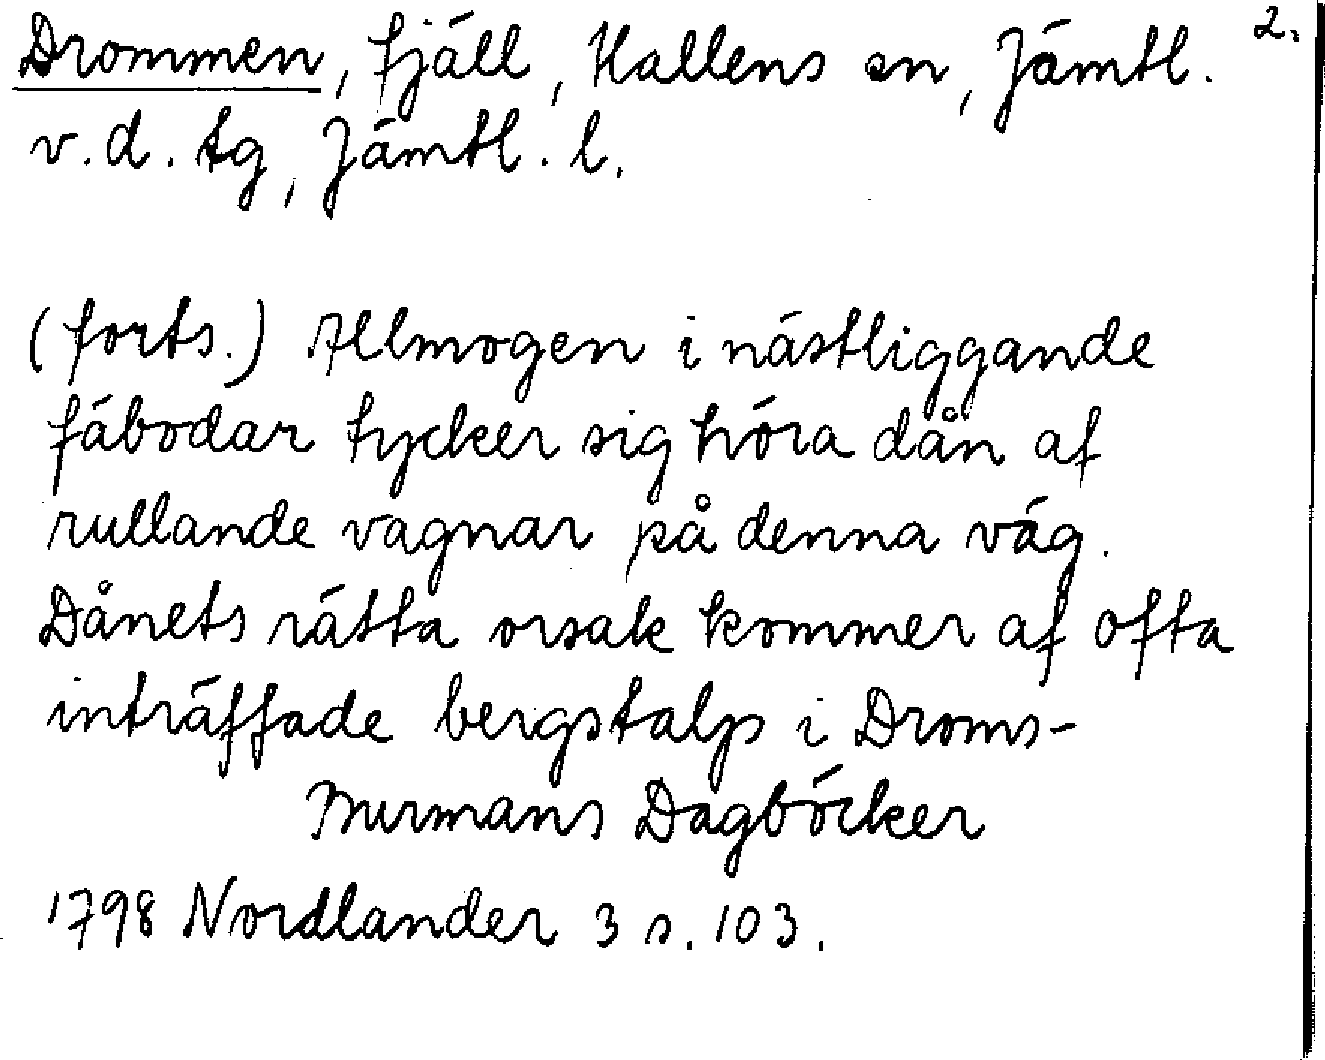 Drommen, fjäll, Hallens sn, Jämtl. 2.
v.d. tg, Jämtl. l.
(forts.) Allmogen i nästliggande
fäbodar tycker sig höra dån af
rullande vagnar på denna väg.
Dånets rätta orsak kommer af ofta
inträffade bergstalps i Droms-
Burmans Dagböcker
1798 Nordlander 3 s. 103.